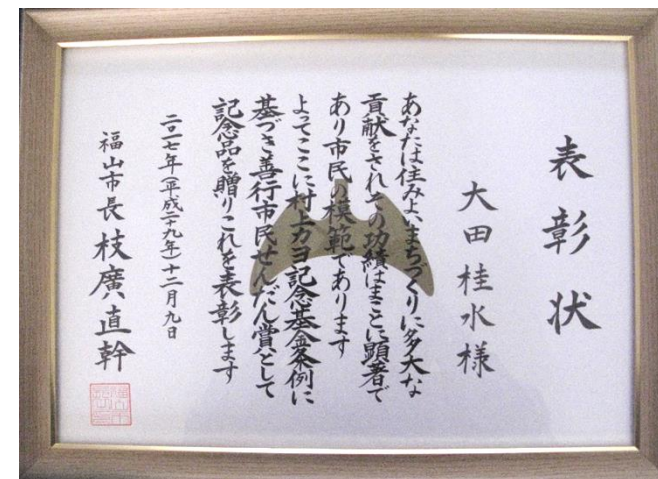 表彰状
大田桂水様
あなたは住みよいまちづくりに多大な
貢献をされその功績はまことに顕著で
あり市民の模範であります
よってここに村上カヨ記念基金条例に
基づき善行市民せんだん賞として
記念品を贈りこれを表彰します
二〇一七年(平成二十九年)十二月九日
福山市長 枝廣直幹